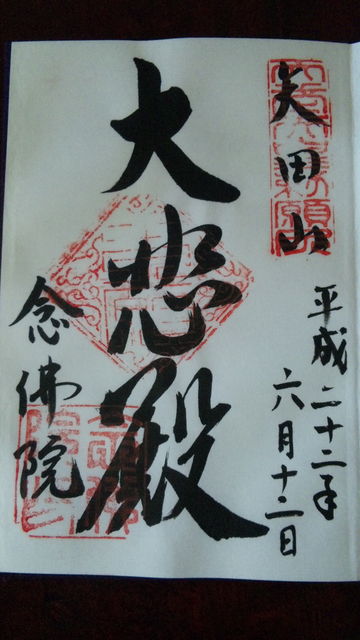 矢田山
平成二十二年
六月十二日
大悲殿
念佛院